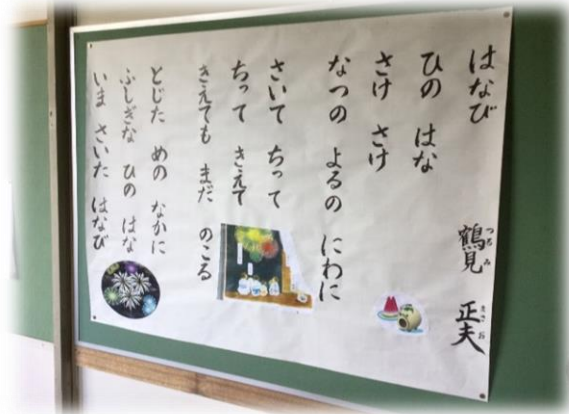 はなび
つるみ まさお
鶴見 正夫
ひの はな
さけ さけ
なつの よるの にわに
さいて ちって
ちって きえて
きえても まだ のこる
とじた めの なかに
ふしぎな ひの はな
いま さいた はなび